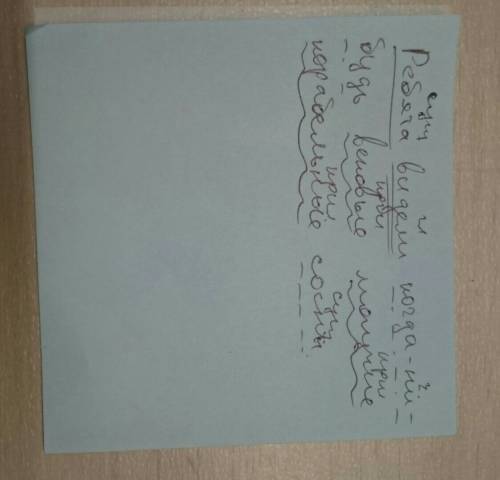 сущ г ?
Ребята видели когда-ни-
прил прил
будь вековые могучие
прил сущ
корабельные сосны